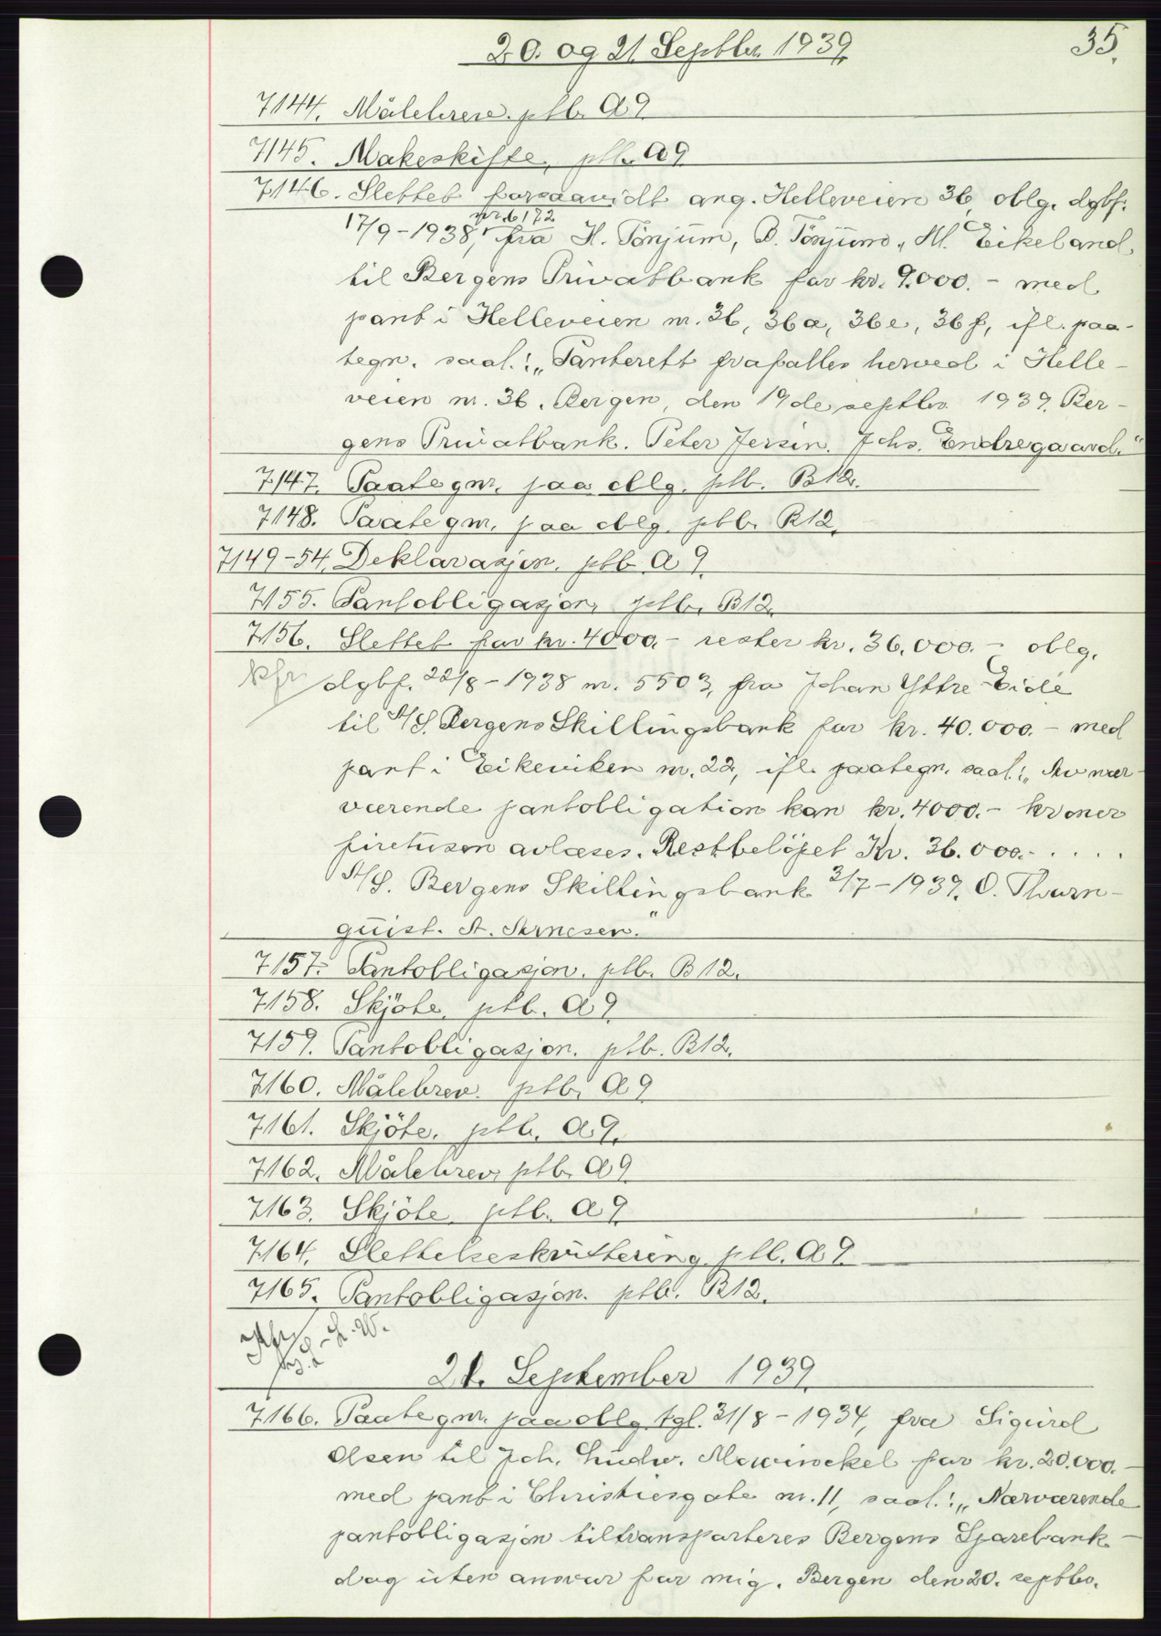 20. og 21. Septbr. 1939.
35.
7144. Målebrev. ptb. A 9.
7145. Makeskifte, ptb. A 9.
7146. Slettet forsaavidt ang. Helleveien 36, oblg. dgbf.
17/9-1938, nr. 6172 fra H. Tönjum, O. Tönjum, M. Eikeland,
til Bergens Privatbank for kr. 9.000.- med
pant i Helleveien nr. 36, 36a, 36e, 36f, ifl. paa-
tegn. saal.: „Panterett frafalles herved i Helle-
veien nr. 36. Bergen, den 19de septbr. 1939. Ber-
gens Privatbank. Peter Jersin. Johs. Endregaard."
7147. Paategnr. paa oblg. ptb. B12.
7148. Paategnr. paa oblg. ptb. B12.
7149-54. Deklarasjon. ptb. A 9.
7155. Pantobligasjon, ptb. B12.
7156. Slettet for kr. 4000.- rester kr. 36.000.- oblg.
dgbf. 22/8-1938 nr. 5503, fra Johan Yttre-Eide
til A/S. Bergens Skillingsbank for kr. 40.000.- med
pant i Eikeviken nr. 22, ifl. paategn. saal.: „Av nær-
værende pantobligation kan kr. 4000.- kroner
firetusen avlæses. Restbelöpet Kr. 36.000.- . . . .
A/S. Bergens Skillingsbank 3/7-1939. O. Thorn-
quist. A. Arnesen."
7157. Pantobligasjon. ptb. B12.
7158. Skjöte, ptb. A 9.
7159. Pantobligasjon. ptb. B12.
7160. Målebrev. ptb. A 9
7161. Skjöte. ptb. A 9.
7162. Målebrev, ptb. A 9.
7163. Skjöte. ptb. A 9.
7164. Slettelseskvittering. ptb. A 9.
7165. Pantobligasjon. ptb. B12.
21. September 1939.
7166. Paategnr. paa oblg. tgl. 31/8-1934, fra Sigurd
Olsen til Joh. Ludw. Mowinckel for kr. 20.000.-
med pant i Christiesgate nr. 11, saal.: „Nærværende
pantobligasjon tiltransporteres Bergens Sparebank-
dog uten ansvar for mig. Bergen den 20. septbr.